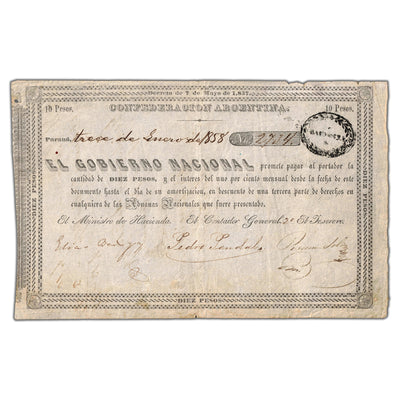 Decreto de 7 de Mayo de 1857.
10 Pesos. CONFEDERACION ARGENTINA. 10 Pesos.
Paraná, trece de Enero de 1858 2754
EL GOBIERNO NACIONAL promete pagar al portador la
cantidad de DIEZ PESOS, y el interes del uno por ciento mensual desde la fecha de este
documento hasta el dia de su amortizacion, en descuento de una tercera parte de derechos en
cualquiera de las Aduanas Nacionales que fuere presentado.
El Ministro de Hacienda. El Contador General. El Tesorero.
Elias Pedro
DIEZ PESOS
DIEZ PESOS
DIEZ PESOS.